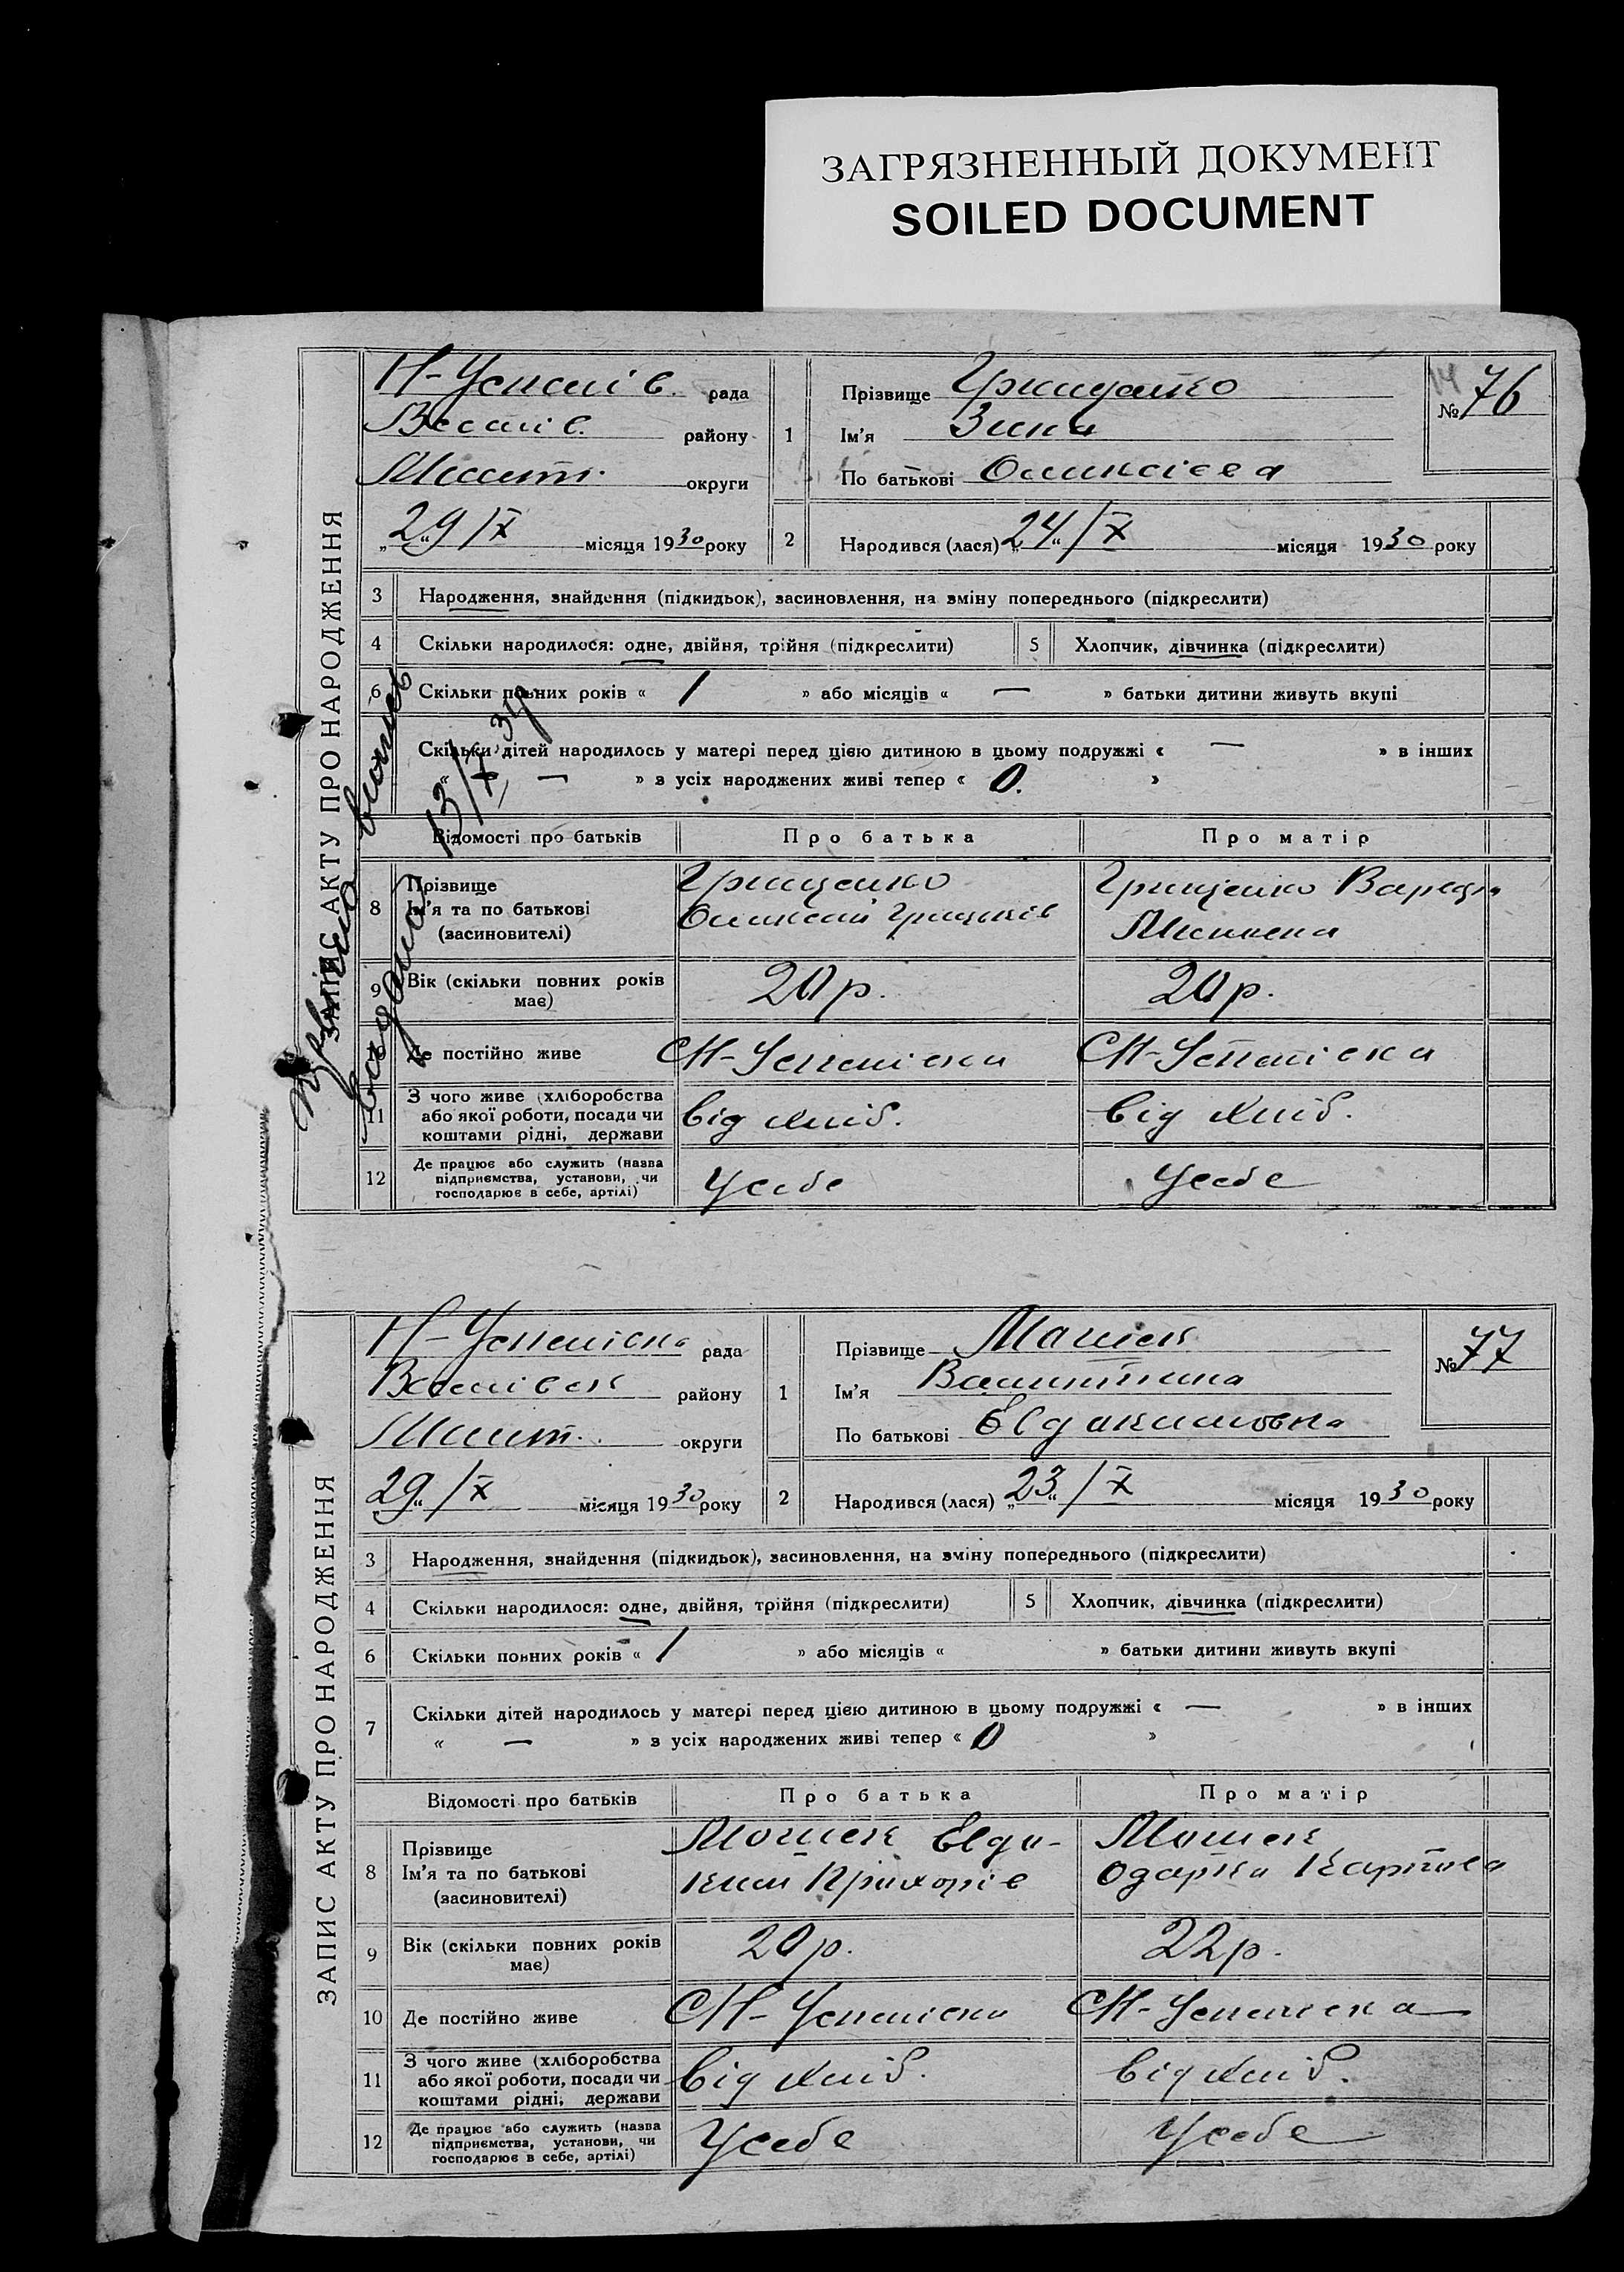 ЗАГРЯЗНЕННЫЙ ДОКУМЕНТ
SOILED DOCUMENT
ЗАПИС АКТУ ПРО НАРОДЖЕННЯ
Н-Успенів. рада
Веселів. району
Меліт. округи
„29“/X місяця 1930 року
1
Прізвище Грищенко
Ім'я Зина
По батькові Оликсієва
№ 76
2
Народився (лася) „24“/X місяця 1930 року
3 Народження, знайдення (підкидьок), засиновлення, на зміну попереднього (підкреслити)
4 Скільки народилося: одне, двійня, трійня (підкреслити)
5 Хлопчик, дівчинка (підкреслити)
6 Скільки повних років « 1 » або місяців « — » батьки дитини живуть вкупі
Скільки дітей народилось у матері перед цією дитиною в цьому подружжі « — » в інших
« — » з усіх народжених живі тепер « 0. »
Відомості про батьків Про батька Про матір
8 Прізвище
Ім'я та по батькові
(засиновителі)
Грищенко
Оликсій
Грищенко
9 Вік (скільки повних років має)
20 р.
20 р.
Де постійно живе
С Н-Успенівка
С Н-Успенівка
11 З чого живе (хліборобства
або якої роботи, посади чи
коштами рідні, держави
від хліб.
від хліб.
12 Де працює або служить (назва
підприємства, установи, чи
господарює в себе, артілі)
У себе
У себе
13/X
ЗАПИС АКТУ ПРО НАРОДЖЕННЯ
Н-Успенівка рада
Веселівск району
Меліт. округи
29“/X місяця 1930 року
1
Прізвище
Ім'я Валинтина
По батькові Євдакимовна
№ 77
2
Народився (лася) „23“/X місяця 1930 року
3 Народження, знайдення (підкидьок), засиновлення, на зміну попереднього (підкреслити)
4 Скільки народилося: одне, двійня, трійня (підкреслити)
5 Хлопчик, дівчинка (підкреслити)
6 Скільки повних років « 1 » або місяців « » батьки дитини живуть вкупі
7 Скільки дітей народилось у матері перед цією дитиною в цьому подружжі « — » в інших
« — » з усіх народжених живі тепер « 0 »
Відомості про батьків Про батька Про матір
8 Прізвище
Ім'я та по батькові
(засиновителі)
Євда-
ким
Одарка Карпова
9 Вік (скільки повних років має)
20 р.
22 р.
10 Де постійно живе
С Н-Успенівка
С Н-Успенівка
11 З чого живе (хліборобства
або якої роботи, посади чи
коштами рідні, держави
від хліб.
від хліб.
12 Де працює або служить (назва
підприємства, установи, чи
господарює в себе, артілі)
У себе
У себе